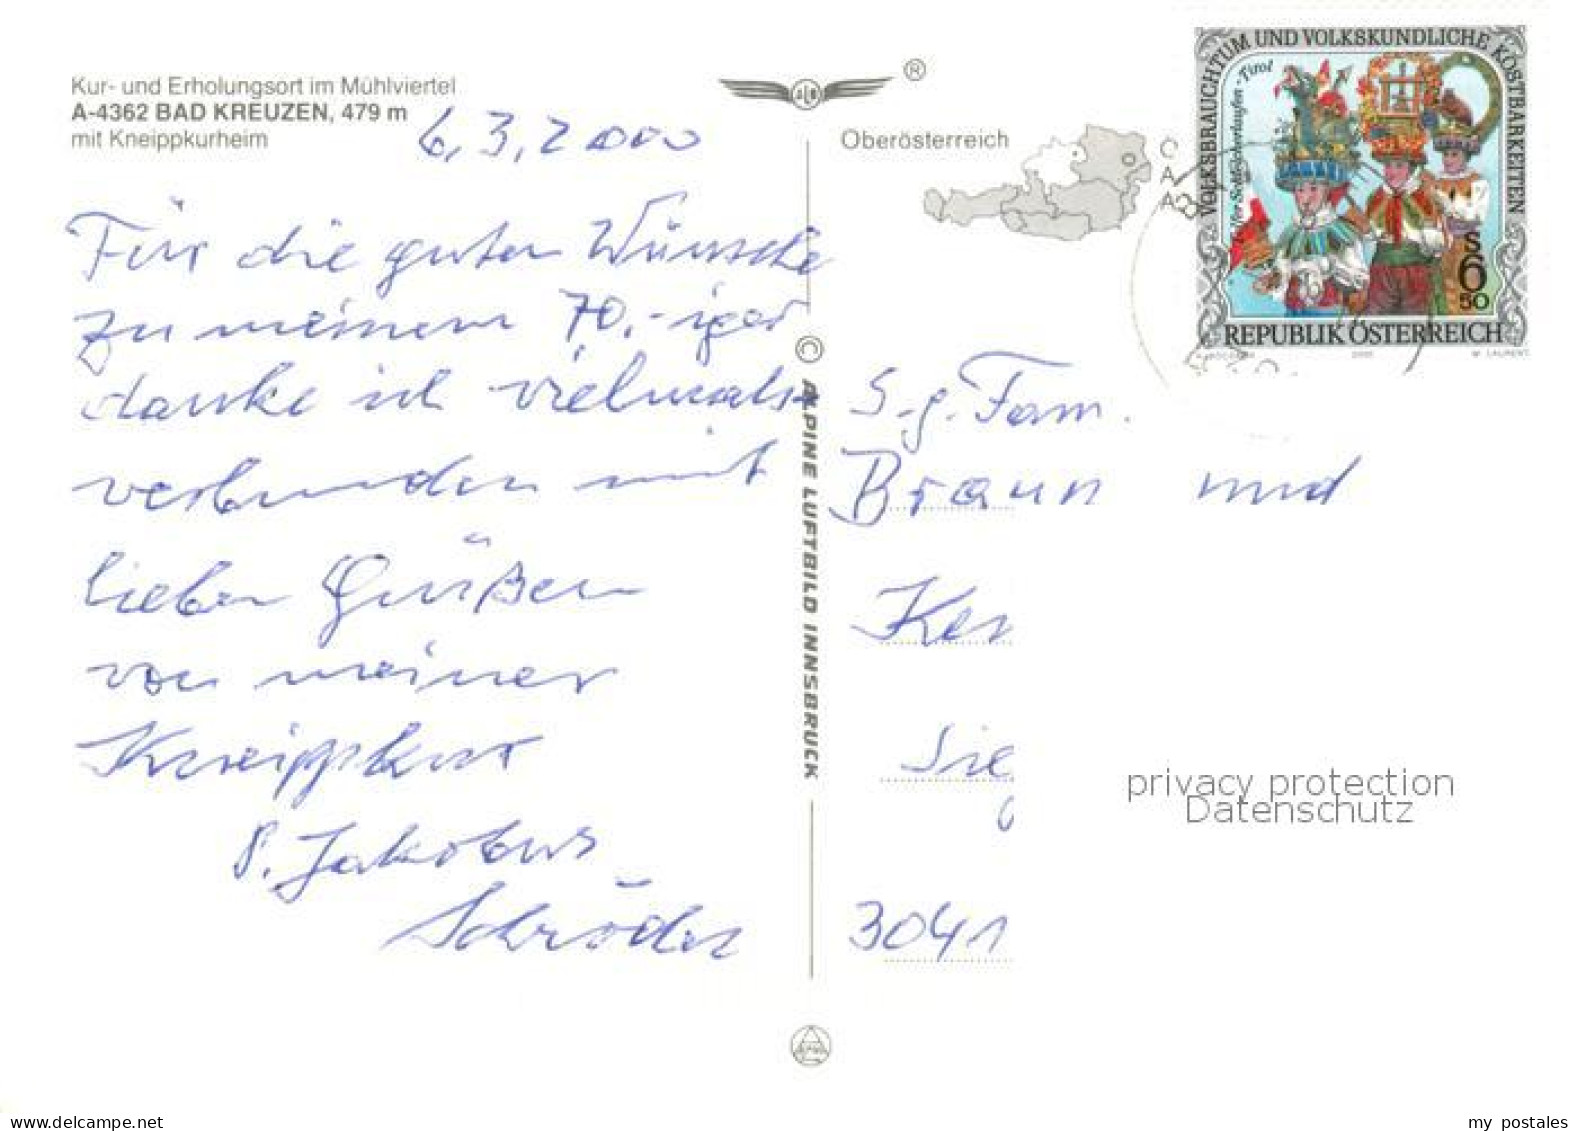 Kur- und Erholungsort im Mühlviertel
A-4362 BAD KREUZEN, 479 m
mit Kneippkurheim
6.3.2000
Für die guten Wünsche
zu meinem 70.-iger
danke ich vielmals
verbunden mit
lieben Grüßen
von meiner
Kneippkur
P. Jakobus
Schröder
®
Oberösterreich
© ALPINE LUFTBILD INNSBRUCK
VOLKSBRAUCHTUM UND VOLKSKUNDLICHE KOSTBARKEITEN
Tirol
S
6
50
REPUBLIK ÖSTERREICH
2000
W. LAURENT
S.g. Fam.
Braun und
Ker
Sie
3041
privacy protection
Datenschutz
www.delcampe.net
my_postales